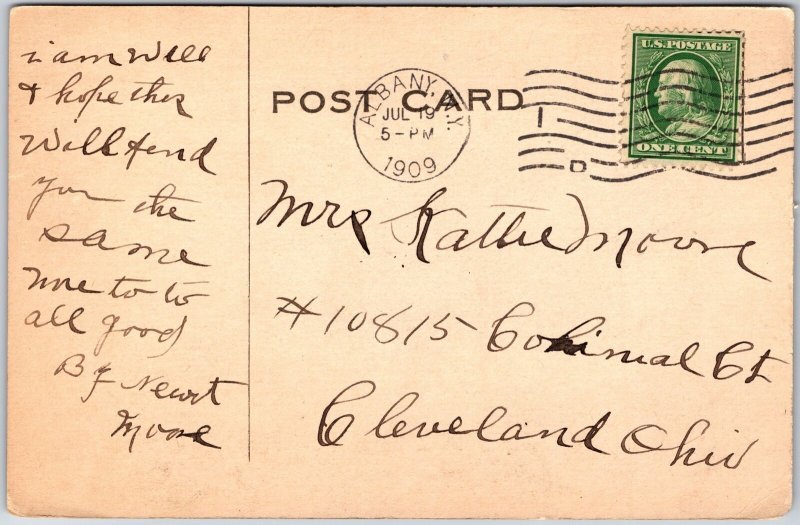 i am Will
& hope this
Will find
you the
same
love to to
all good
By Newt
Moore
POST CARD
ALBANY, N.Y.
JUL 19
5-PM
1909
1
D
U.S. POSTAGE
ONE CENT
Mrs Kattie Moore
#10815 Colinial Ct
Cleveland Ohio